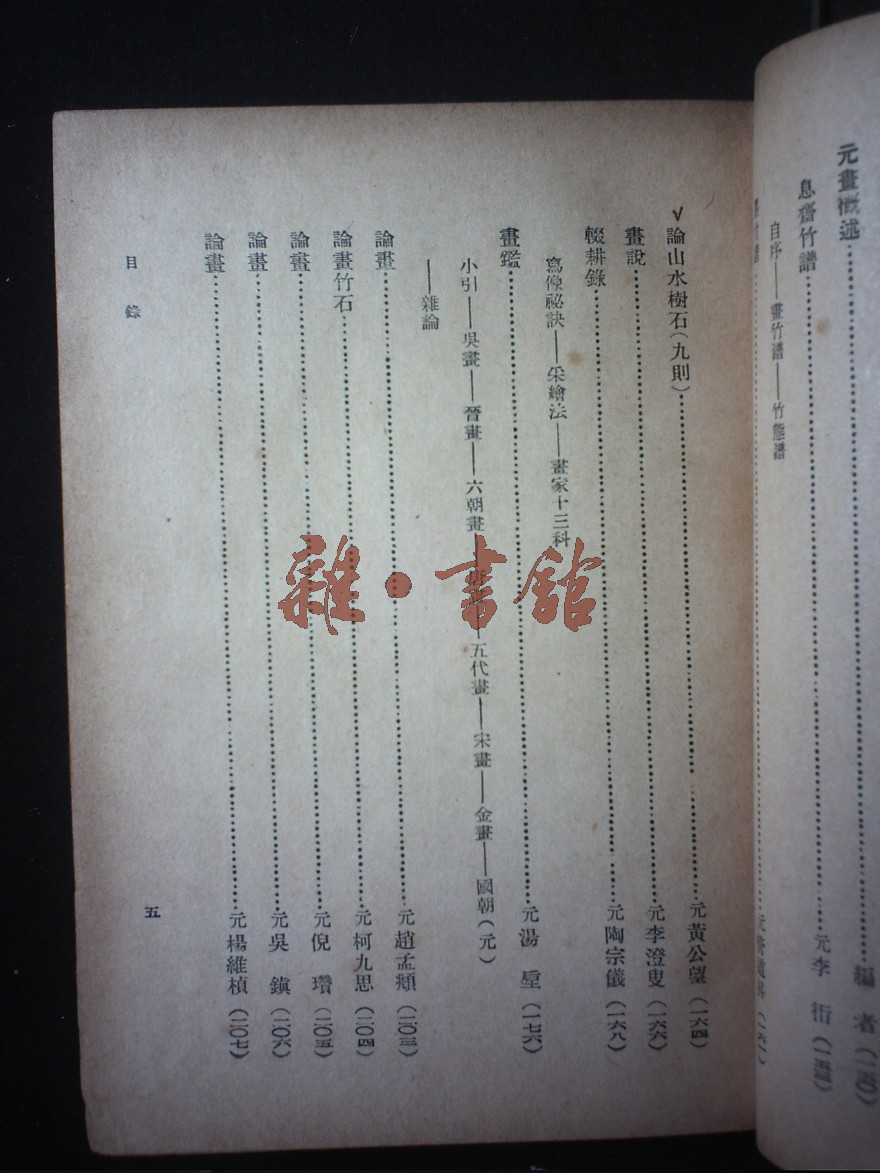 元畫概述……編者（一五〇）
息齋竹譜……元李衎（一五三）
自序——畫竹譜——竹態譜
竹譜……元（一六一）
∨論山水樹石（九則）……元黃公望（一六四）
畫說……元李澄叟（一六六）
輟耕錄……元陶宗儀（一六八）
寫像祕訣——采繪法——畫家十三科
畫鑑……元湯垕（一七六）
小引——吳畫——晉畫——六朝畫——五代畫——宋畫——金畫——國朝（元）
——雜論
論畫……元趙孟頫（二〇三）
論畫竹石……元柯九思（二〇四）
論畫……元倪瓚（二〇五）
論畫……元吳鎮（二〇六）
論畫……元楊維楨（二〇七）
目錄
五
雜·書館